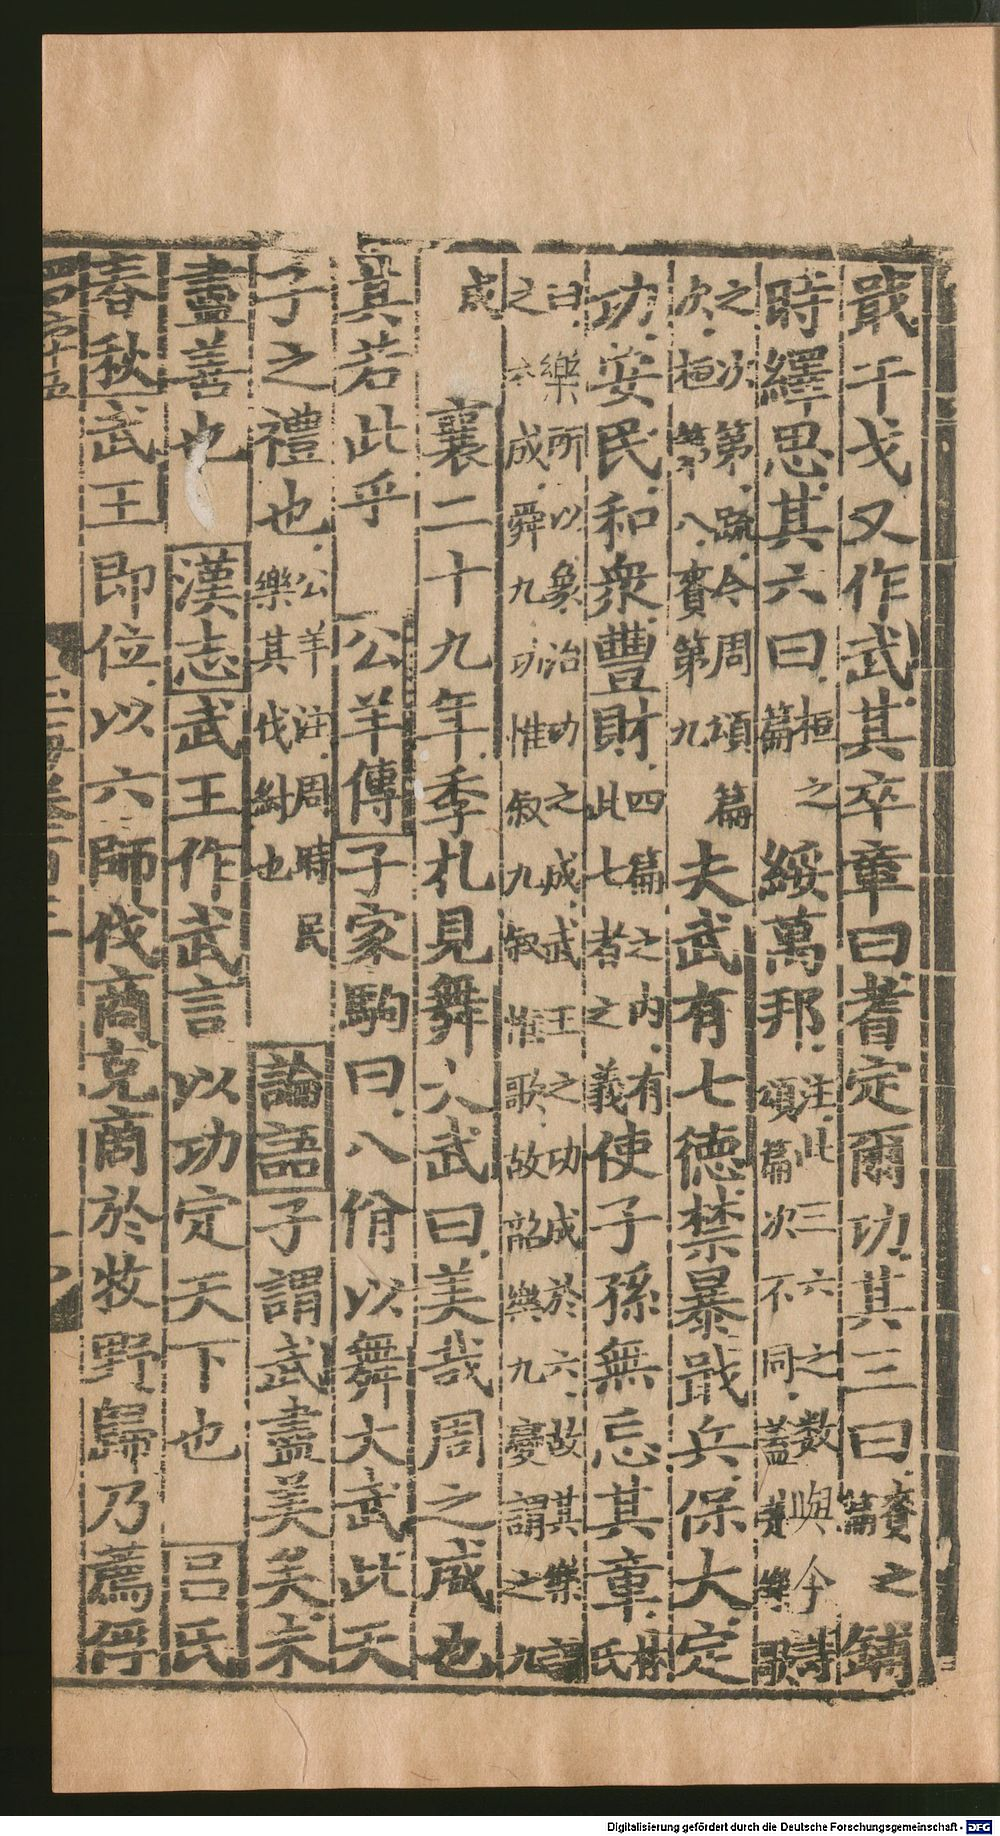 戢干戈又作武其卒章曰耆定爾功其三曰賚之篇鋪
時繹思其六曰桓之篇綏萬邦注此三六之数與今詩頌篇次不同蓋楚樂歌
之次第疏今周頌篇次桓第八賚第九夫武有七德禁暴戢兵保大定
功安民和衆豐財四篇之内有此七者之義使子孫無忘其章林氏
曰樂所以象治功之成武王之功成於六故其樂之六成舜九功惟叙九叙惟歌故韶樂九變謂之九
成 襄二十九年季札見舞大武曰美哉周之盛也
其若此乎 公羊傳子家駒曰八佾以舞大武此天
子之禮也公羊注周時民樂其伐紂也 論語子謂武盡美美未
盡善也 漢志武王作武言以功定天下也 吕氏
春秋武王即位以六師伐商克商於牧野歸乃薦俘
Digitalisierung gefördert durch die Deutsche Forschungsgemeinschaft - DFG